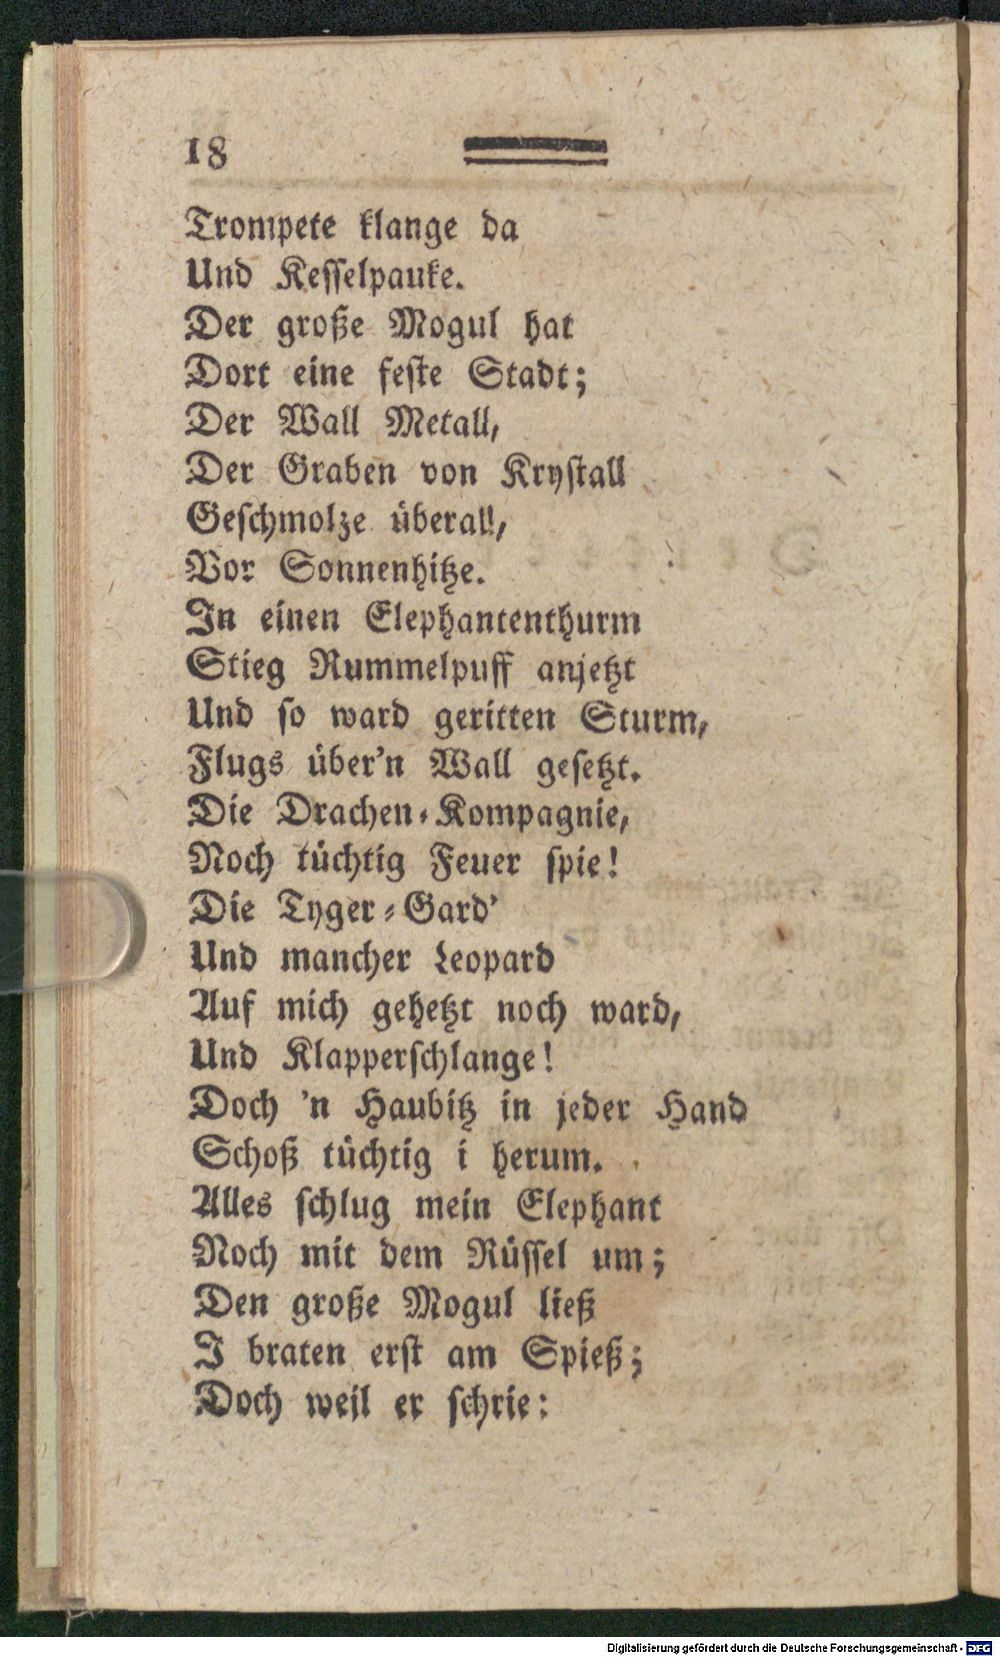 18
Trompete klange da
Und Kesselpauke.
Der große Mogul hat
Dort eine feste Stadt;
Der Wall Metall,
Der Graben von Krystall
Geschmolze überall,
Vor Sonnenhitze.
In einen Elephantenthurm
Stieg Rummelpuff anjetzt
Und so ward geritten Sturm,
Flugs über'n Wall gesetzt.
Die Drachen-Kompagnie,
Noch tüchtig Feuer spie!
Die Tyger-Gard'
Und mancher Leopard
Auf mich gehetzt noch ward,
Und Klapperschlange!
Doch 'n Haubitz in jeder Hand
Schoß tüchtig i herum.
Alles schlug mein Elephant
Noch mit dem Rüssel um;
Den große Mogul ließ
I braten erst am Spieß;
Doch weil er schrie:
Digitalisierung gefördert durch die Deutsche Forschungsgemeinschaft - DFG